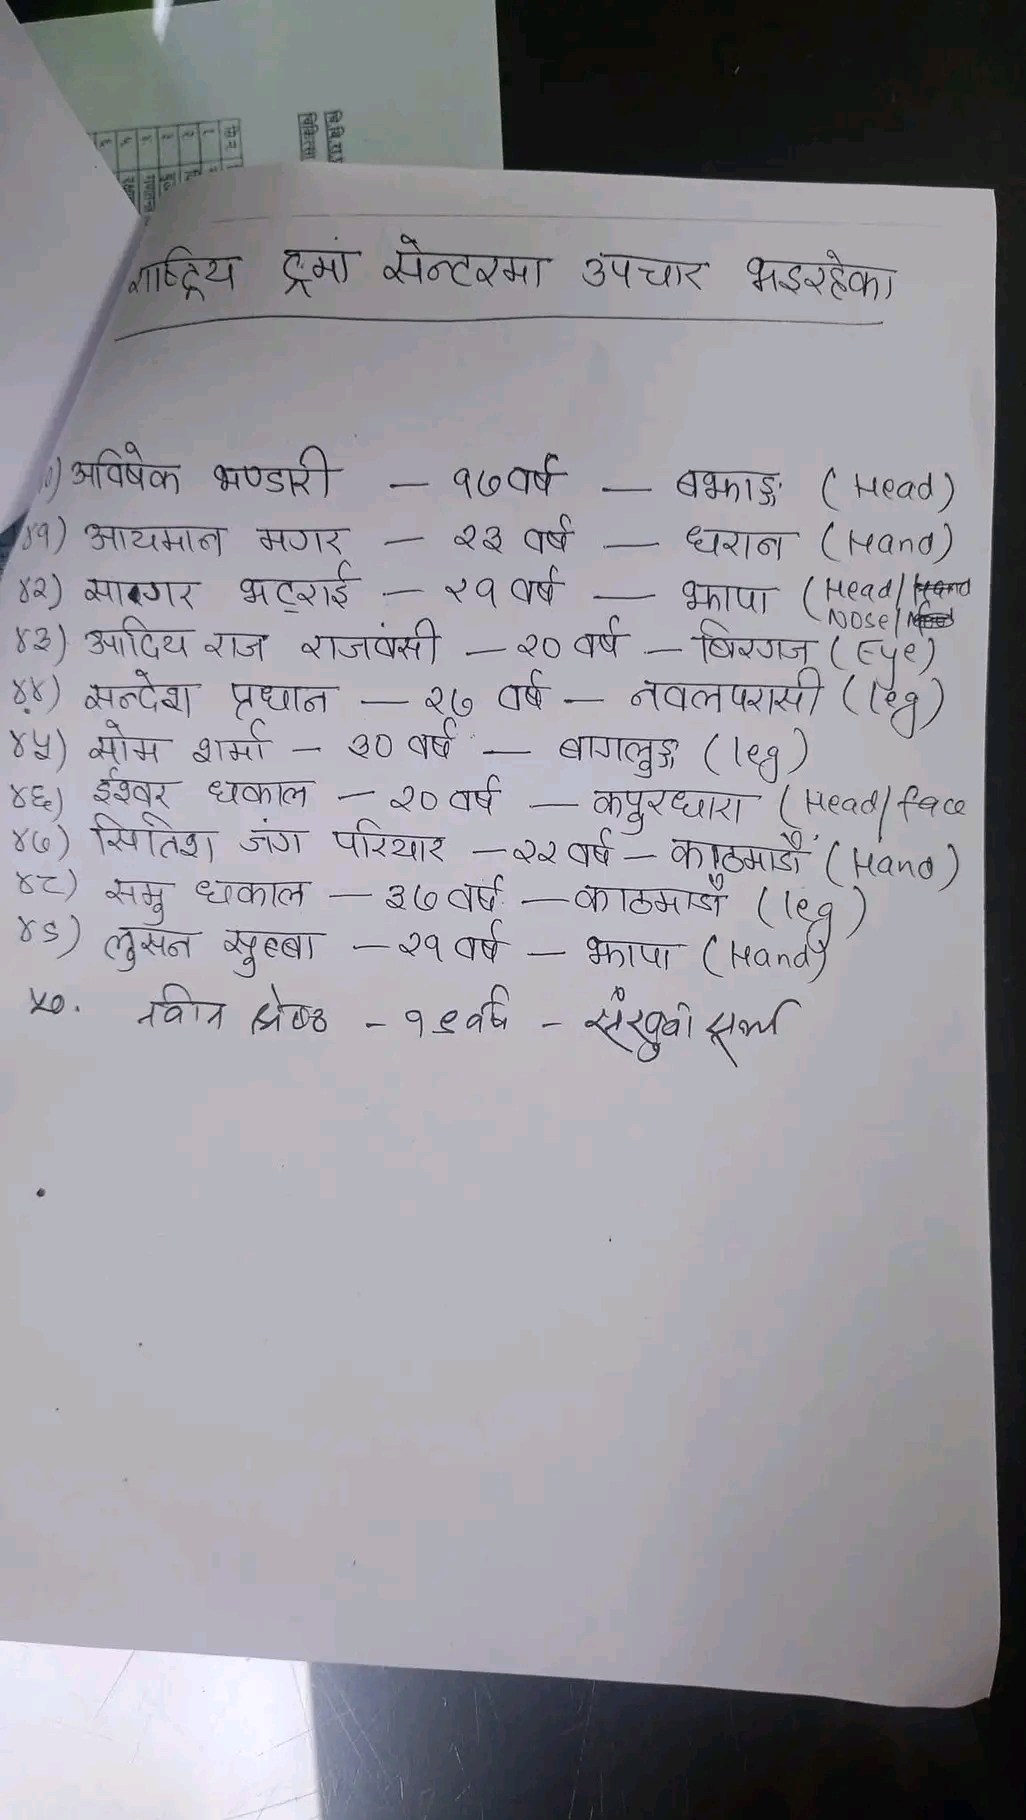 राष्ट्रिय ट्रमां सेन्टरमा उपचार भइरहेका
अविषेक भण्डारी — १७ वर्ष — बझाङ्ग (Head)
४१) आयमान मगर — २३ वर्ष — धरान (Hand)
४२) सागर भट्राई — २१ वर्ष — झापा (Head/
Nose/
४३) आदिय राज राजवंसी — २० वर्ष — बिरगज (Eye)
४४) सन्देश प्रधान — २७ वर्ष — नवलपरासी (leg)
४५) सोम शर्मा — ३० वर्ष — बागलुङ्ग (leg)
४६) ईश्वर धकाल — २० वर्ष — कपुरधारा (Head/face
४७) सितिश जंग परियार — २२ वर्ष — काठमाडौं (Hand)
४८) समु धकाल — ३७ वर्ष — काठमाडौं (leg)
४९) लुसन सुहबा — २१ वर्ष — झापा (Hand)
५०. नविन श्रेष्ठ — १९ वर्ष —